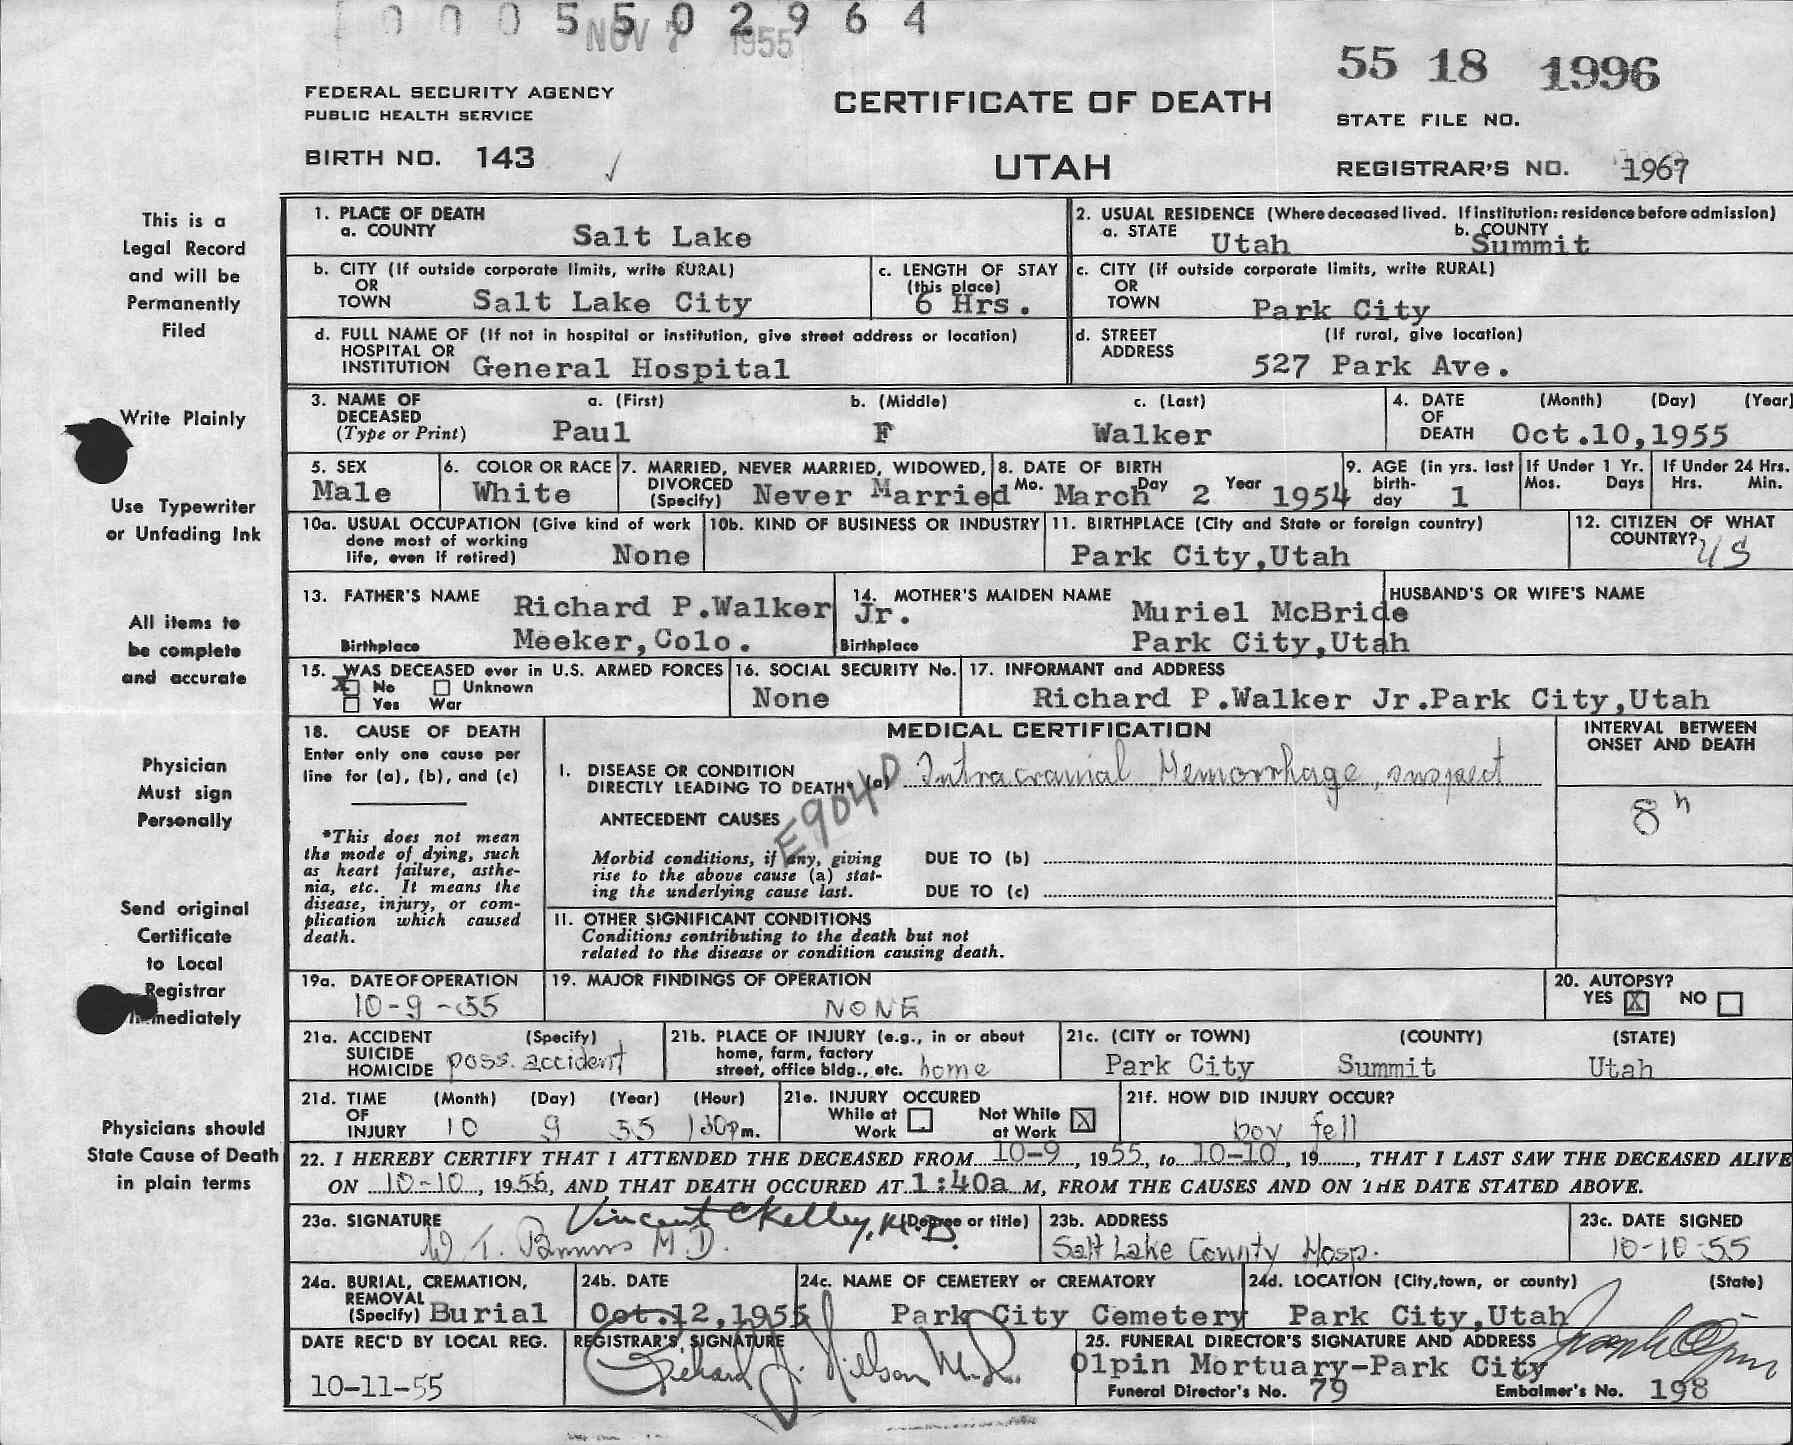 0005502964
NOV 7 1955
55 18 1996
FEDERAL SECURITY AGENCY
PUBLIC HEALTH SERVICE
CERTIFICATE OF DEATH
STATE FILE NO.
BIRTH NO. 143
UTAH
REGISTRAR'S NO. 1967
This is a
Legal Record
and will be
Permanently
Filed
Write Plainly
Use Typewriter
or Unfading Ink
All items to
be complete
and accurate
Physician
Must sign
Personally
Send original
Certificate
to Local
Registrar
Immediately
Physicians should
State Cause of Death
in plain terms
1. PLACE OF DEATH
a. COUNTY Salt Lake
2. USUAL RESIDENCE (Where deceased lived. If institution: residence before admission)
a. STATE Utah b. COUNTY Summit
b. CITY (If outside corporate limits, write RURAL)
OR
TOWN Salt Lake City
c. LENGTH OF STAY
(this place)
6 Hrs.
c. CITY (if outside corporate limits, write RURAL)
OR
TOWN Park City
d. FULL NAME OF (If not in hospital or institution, give street address or location)
HOSPITAL OR
INSTITUTION General Hospital
d. STREET (If rural, give location)
ADDRESS 527 Park Ave.
3. NAME OF a. (First) b. (Middle) c. (Last)
DECEASED
(Type or Print) Paul F Walker
4. DATE (Month) (Day) (Year)
OF
DEATH Oct.10,1955
5. SEX
Male
6. COLOR OR RACE
White
7. MARRIED, NEVER MARRIED, WIDOWED,
DIVORCED
(Specify) Never Married
8. DATE OF BIRTH
Mo. March Day 2 Year 1954
9. AGE (in yrs. last
birth-
day 1
If Under 1 Yr.
Mos. Days
If Under 24 Hrs.
Hrs. Min.
10a. USUAL OCCUPATION (Give kind of work
done most of working
life, even if retired) None
10b. KIND OF BUSINESS OR INDUSTRY
11. BIRTHPLACE (City and State or foreign country)
Park City,Utah
12. CITIZEN OF WHAT
COUNTRY? US
13. FATHER'S NAME Richard P.Walker Jr.
Birthplace Meeker,Colo.
14. MOTHER'S MAIDEN NAME Muriel McBride
Birthplace Park City,Utah
HUSBAND'S OR WIFE'S NAME
15. WAS DECEASED ever in U.S. ARMED FORCES
X No Unknown
Yes War
16. SOCIAL SECURITY No.
None
17. INFORMANT and ADDRESS
Richard P.Walker Jr.Park City,Utah
18. CAUSE OF DEATH
Enter only one cause per
line for (a), (b), and (c)
*This does not mean
the mode of dying, such
as heart failure, asthe-
nia, etc. It means the
disease, injury, or com-
plication which caused
death.
MEDICAL CERTIFICATION
I. DISEASE OR CONDITION
DIRECTLY LEADING TO DEATH* (a) Intracranial Hemorrhage, suspect
E904D
ANTECEDENT CAUSES
Morbid conditions, if any, giving
rise to the above cause (a) stat-
ing the underlying cause last.
DUE TO (b)
DUE TO (c)
II. OTHER SIGNIFICANT CONDITIONS
Conditions contributing to the death but not
related to the disease or condition causing death.
INTERVAL BETWEEN
ONSET AND DEATH
8 h
19a. DATE OF OPERATION
10-9-55
19. MAJOR FINDINGS OF OPERATION
NONE
20. AUTOPSY?
YES X NO
21a. ACCIDENT (Specify)
SUICIDE
HOMICIDE poss. accident
21b. PLACE OF INJURY (e.g., in or about
home, farm, factory
street, office bldg., etc. home
21c. (CITY or TOWN) (COUNTY) (STATE)
Park City Summit Utah
21d. TIME (Month) (Day) (Year) (Hour)
OF
INJURY 10 9 55 130pm.
21e. INJURY OCCURED
While at Not While
Work at Work X
21f. HOW DID INJURY OCCUR?
boy fell
22. I HEREBY CERTIFY THAT I ATTENDED THE DECEASED FROM 10-9, 1955, to 10-10, 19......, THAT I LAST SAW THE DECEASED ALIVE
ON 10-10, 1955, AND THAT DEATH OCCURED AT 1:40a M, FROM THE CAUSES AND ON THE DATE STATED ABOVE.
23a. SIGNATURE Vincent C Kelley, M.D. (Degree or title)
W. T. M D.
23b. ADDRESS
Salt Lake County Hosp.
23c. DATE SIGNED
10-10-55
24a. BURIAL, CREMATION,
REMOVAL
(Specify) Burial
24b. DATE
Oct.12,1955
24c. NAME OF CEMETERY or CREMATORY
Park City Cemetery
24d. LOCATION (City,town, or county) (State)
Park City,Utah
DATE REC'D BY LOCAL REG.
10-11-55
REGISTRAR'S SIGNATURE
Richard J. Nielson M.D.
25. FUNERAL DIRECTOR'S SIGNATURE AND ADDRESS
Joseph Olpin
Olpin Mortuary-Park City
Funeral Director's No. 79 Embalmer's No. 198